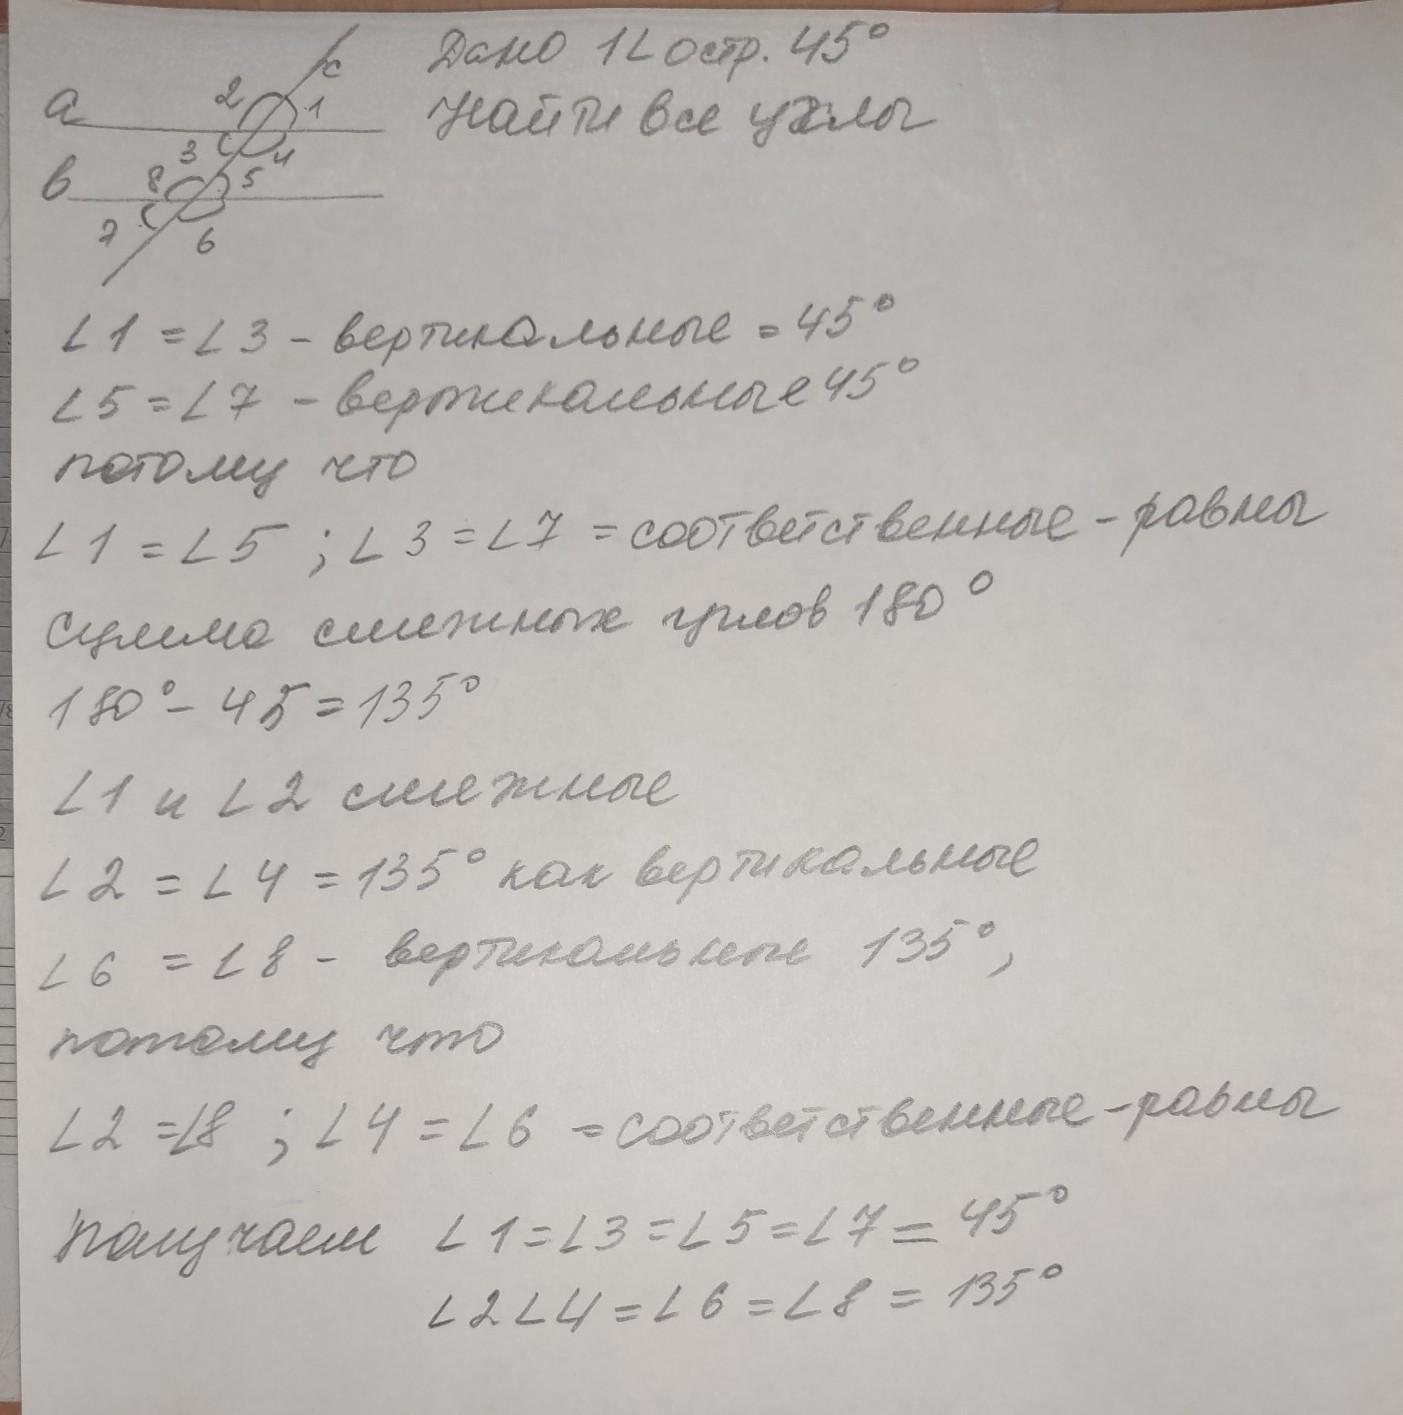 c
Дано 1∠ остр. 45°
a
2
1
Найти все углы
3
4
b
8
5
7
6
∠1 = ∠3 - вертикальные = 45°
∠5 = ∠7 - вертикальные 45°
потому что
∠1 = ∠5 ; ∠3 = ∠7 = соответственные - равны
Сумма смежных углов 180°
180° - 45 = 135°
∠1 и ∠2 смежные
∠2 = ∠4 = 135° как вертикальные
∠6 = ∠8 - вертикальные 135°,
потому что
∠2 = ∠8 ; ∠4 = ∠6 = соответственные - равны
Получаем ∠1 = ∠3 = ∠5 = ∠7 = 45°
∠2 ∠4 = ∠6 = ∠8 = 135°